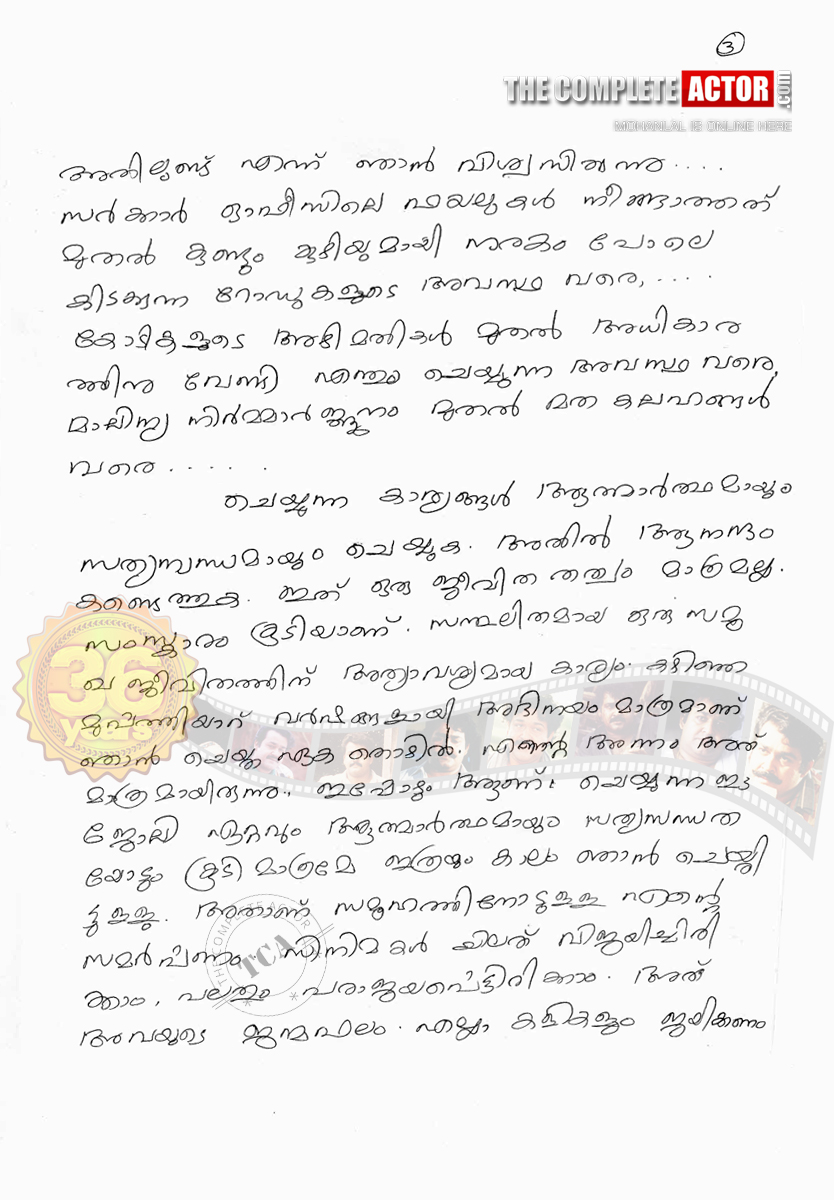 3
THE COMPLETE ACTOR .com
MOHANLAL IS ONLINE HERE
അതിലുണ്ട് എന്ന് ഞാൻ വിശ്വസിക്കുന്നു....
സർക്കാർ ഓഫീസിലെ ഫയലുകൾ നീങ്ങാത്തത്
മുതൽ കുണ്ടും കുഴിയുമായി നരകം പോലെ
കിടക്കുന്ന റോഡുകളുടെ അവസ്ഥ വരെ, ....
കോഴകളുടെ അഴിമതികൾ മുതൽ അധികാര
ത്തിനു വേണ്ടി എന്തും ചെയ്യുന്ന അവസ്ഥ വരെ,
മാലിന്യ നിർമ്മാർജ്ജനം മുതൽ മത കലഹങ്ങൾ
വരെ ......
ചെയ്യുന്ന കാര്യങ്ങൾ ആത്മാർത്ഥമായും
സത്യസന്ധമായും ചെയ്യുക. അതിൽ ആനന്ദം
കണ്ടെത്തുക. ഇത് ഒരു ജീവിത തത്വം മാത്രമല്ല.
സംസ്ക്കാരം കൂടിയാണ്. സന്തുലിതമായ ഒരു സമൂ
ഖ ജീവിതത്തിന് അത്യാവശ്യമായ കാര്യം. കഴിഞ്ഞ
മുപ്പത്തിയാറ് വർഷങ്ങളായി അഭിനയം മാത്രമാണ്
ഞാൻ ചെയ്ത ഏക തൊഴിൽ. എന്റെ അന്നം അത്
മാത്രമായിരുന്നു, ഇപ്പോഴും ആണ്. ചെയ്യുന്ന ഈ
ജോലി ഏറ്റവും ആത്മാർത്ഥമായും സത്യസന്ധത
യോടും കൂടി മാത്രമേ ഇത്രയും കാലം ഞാൻ ചെയ്തി
ട്ടുള്ളു. അതാണ് സമൂഹത്തിനോടുള്ള എന്റെ
സമർപ്പണം. സിനിമകൾ ചിലത് വിജയിച്ചിരി
ക്കാം, പലതും പരാജയപ്പെട്ടിരിക്കാം. അത്
അവയുടെ ജന്മഫലം. എല്ലാ കളികളും ജയിക്കണം
36
YEARS
THE COMPLETE ACTOR
TCA